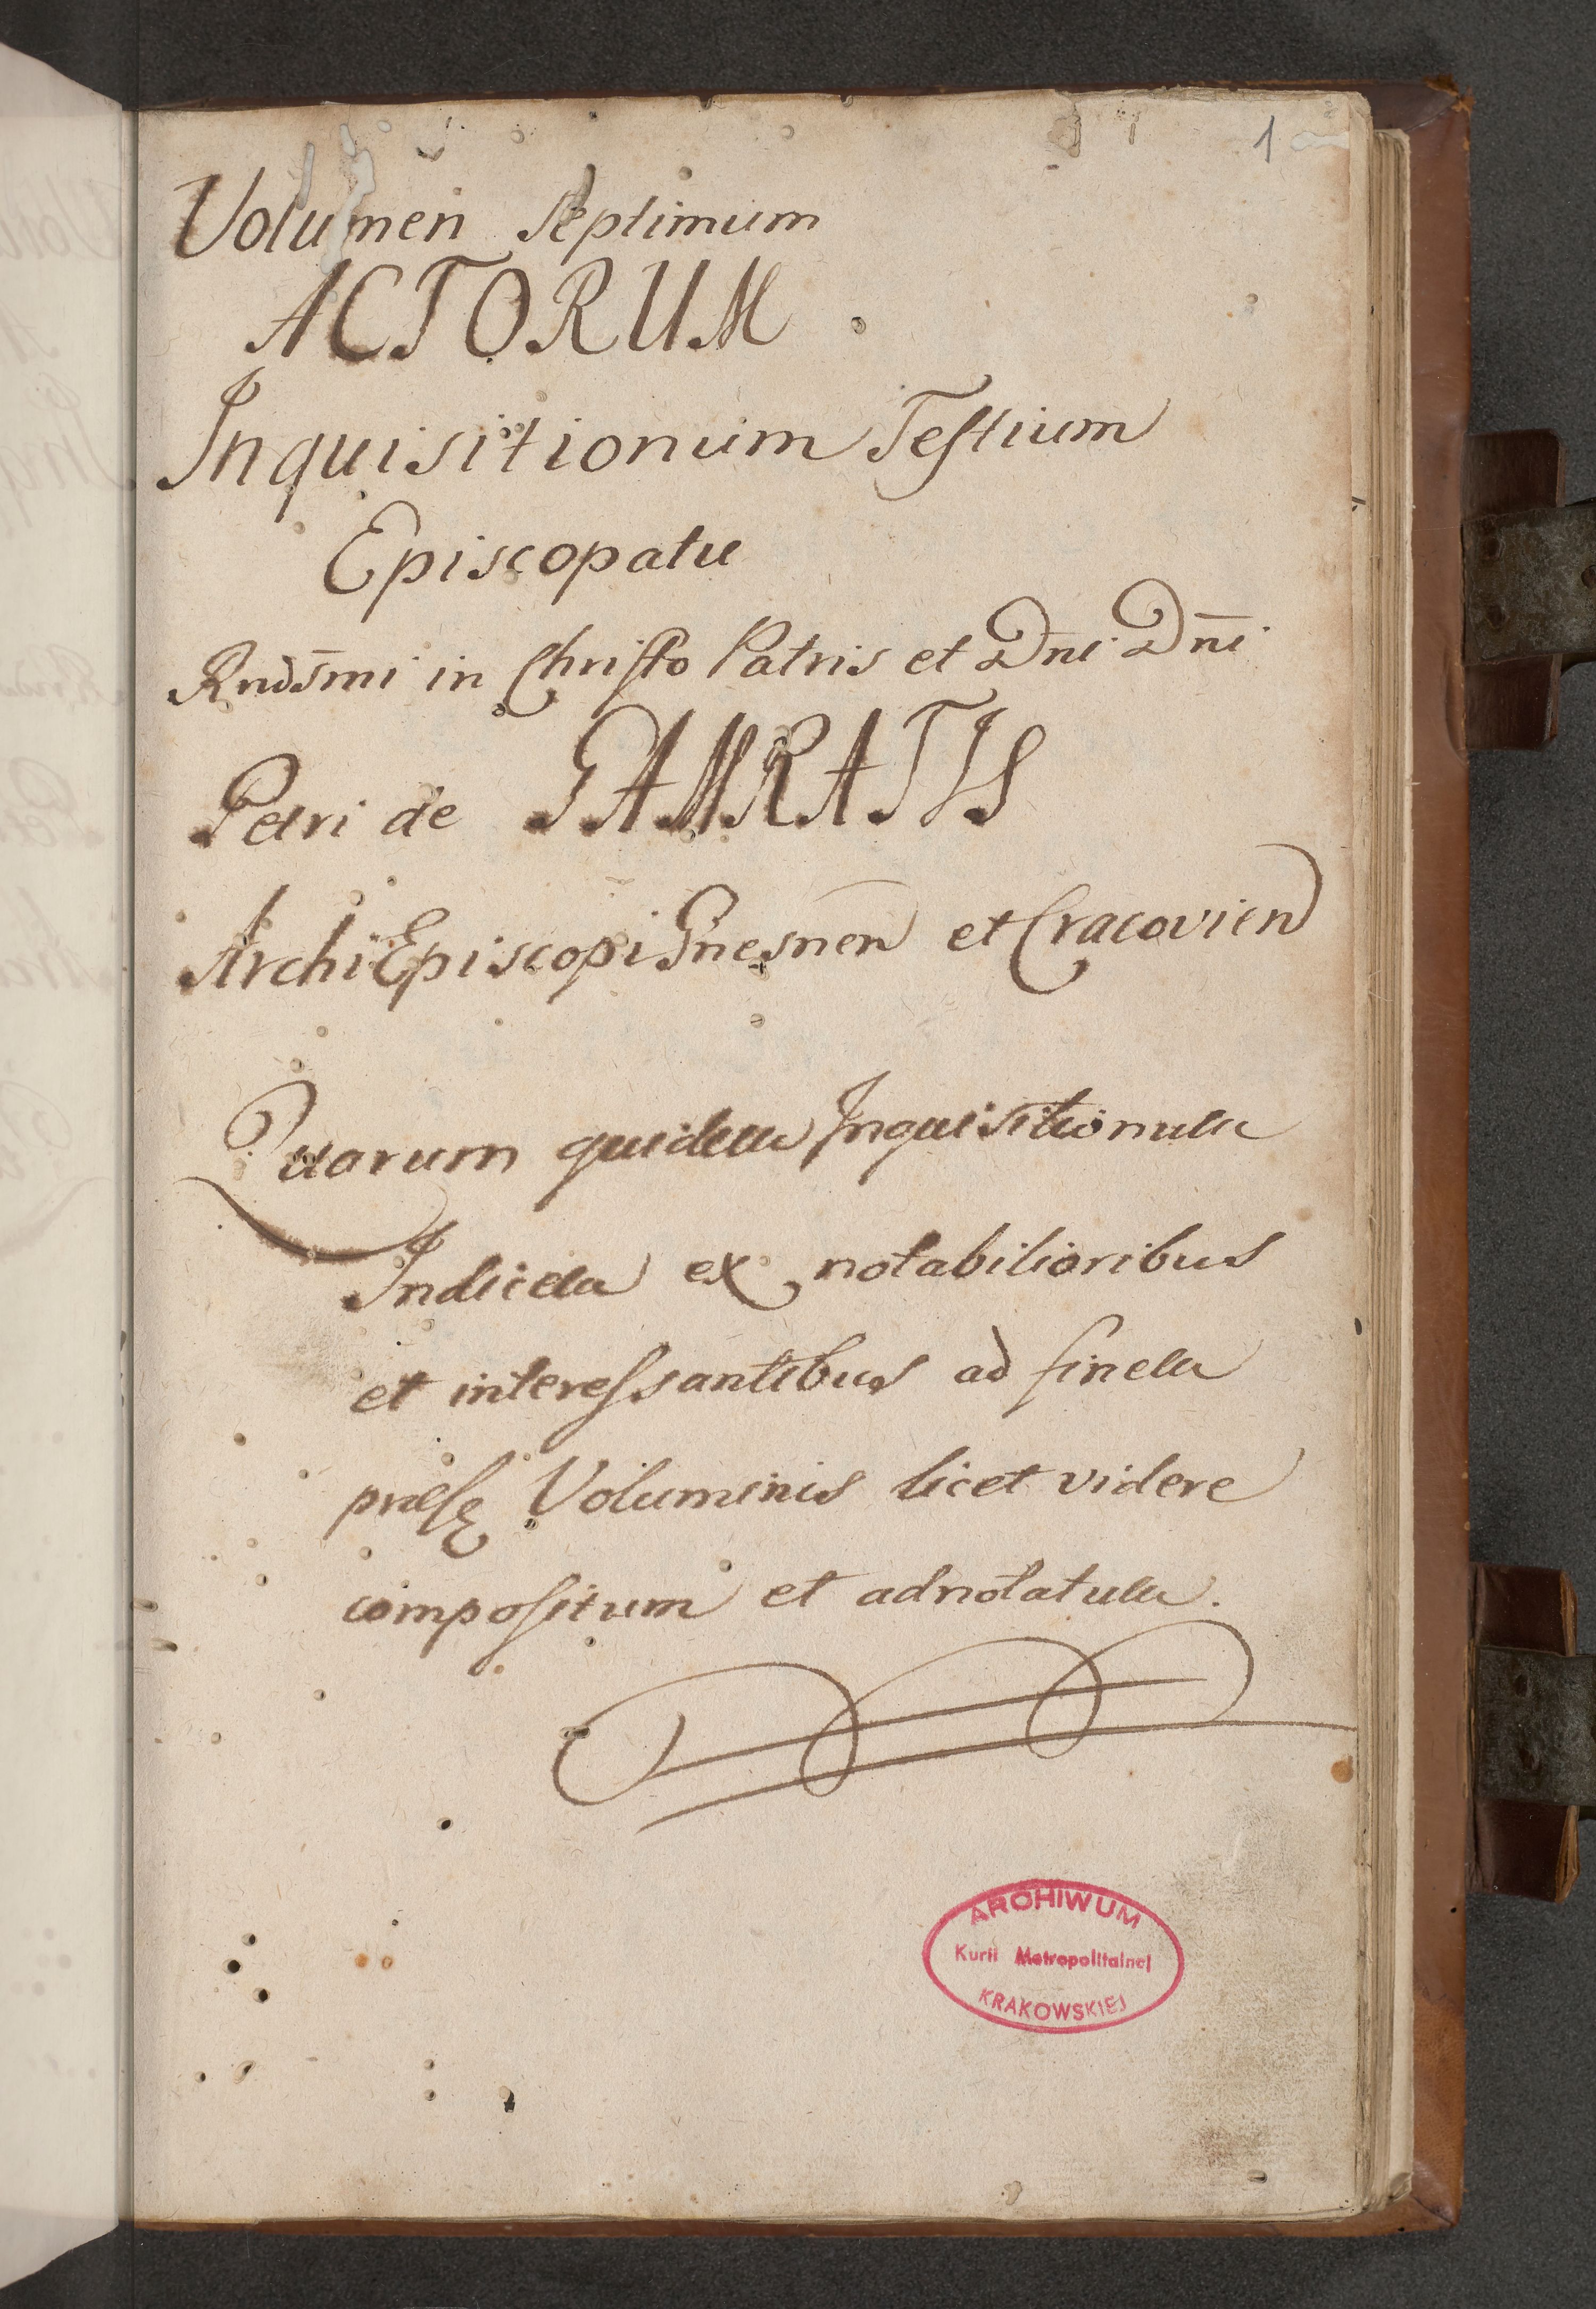 1
Volumen septimum
ACTORUM
Inquisitionum Testium
Episcopatu
Rnds̄mi in Christo Patris et Dni Dn̄i
Petri de GAMRATIS
ArchiEpiscopi Gnesnen et Cracovien
Quarum quidem Inquisitionum
Indicem ex notabilioribus
et interessantibus ad finem
Voluminis licet videre
compositum et adnotatum.
ARCHIWUM
Kurii Metropolitalnej
KRAKOWSKIEJ